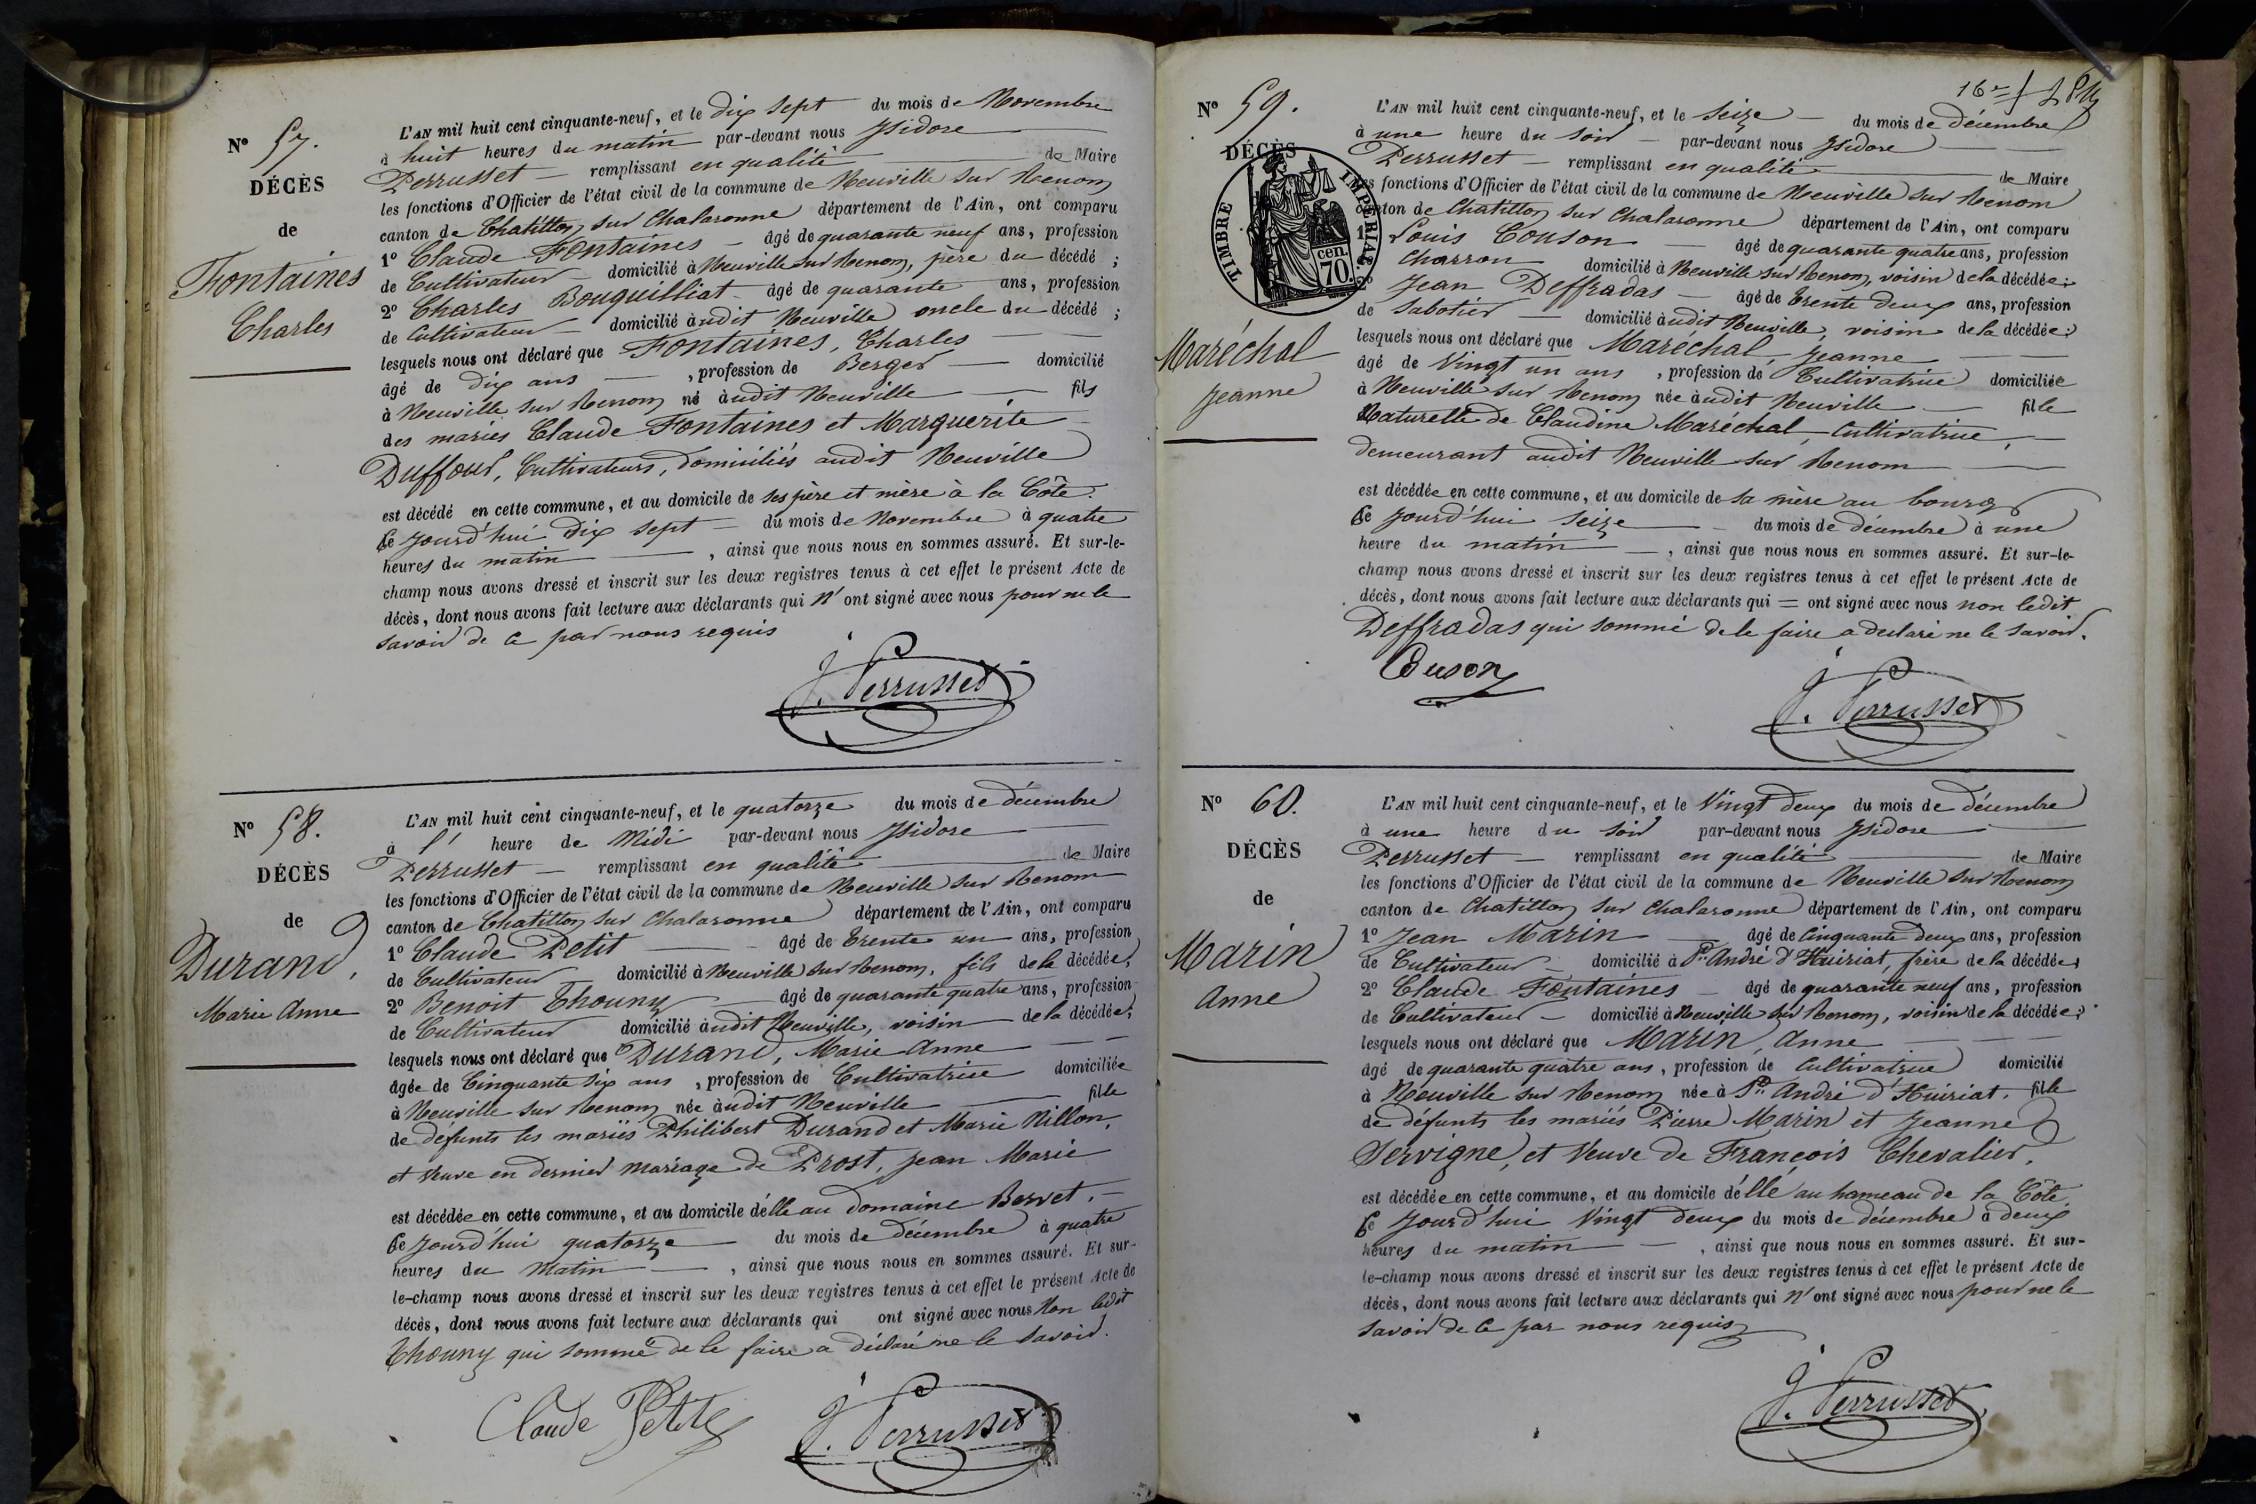 N° 57.
DÉCÈS
de
Fontaines
Charles
L'AN mil huit cent cinquante-neuf, et le dix sept du mois de Novembre
à huit heures du matin par-devant nous Isidore
Perrusset remplissant en qualité de Maire
les fonctions d'Officier de l'état civil de la commune de Neuville sur Renom
canton de Chatillon sur Chalaronne département de l'Ain, ont comparu
1° Claude Fontaines âgé de quarante neuf ans, profession
de Cultivateur domicilié à Neuville sur Renom, père du décédé ;
2° Charles Bouquilliat âgé de quarante ans, profession
de Cultivateur domicilié audit Neuville oncle du décédé ;
lesquels nous ont déclaré que Fontaines, Charles
âgé de dix ans , profession de Berger domicilié
à Neuville sur Renom né audit Neuville fils
des mariés Claude Fontaines et Marguerite
Duffour, Cultivateurs, domiciliés audit Neuville
est décédé en cette commune, et au domicile de ses père et mère à la Côte.
Ce jourd'hui dix sept du mois de Novembre à quatre
heures du matin , ainsi que nous nous en sommes assuré. Et sur-le-
champ nous avons dressé et inscrit sur les deux registres tenus à cet effet le présent Acte de
décès, dont nous avons fait lecture aux déclarants qui n'ont signé avec nous pour ne le
savoir de ce par nous requis
J. Perrusset
N° 58.
DÉCÈS
de
Durand,
Marie Anne
L'AN mil huit cent cinquante-neuf, et le quatorze du mois de décembre
à l' heure de Midi par-devant nous Isidore
Perrusset remplissant en qualité de Maire
les fonctions d'Officier de l'état civil de la commune de Neuville sur Renom
canton de Chatillon sur Chalaronne département de l'Ain, ont comparu
1° Claude Petit âgé de trente un ans, profession
de Cultivateur domicilié à Neuville sur Renom, fils de la décédée ;
2° Benoit Thouny âgé de quarante quatre ans, profession
de Cultivateur domicilié audit Neuville, voisin de la décédée ;
lesquels nous ont déclaré que Durand, Marie Anne
âgée de Cinquante six ans , profession de Cultivatrice domiciliée
à Neuville sur Renom née audit Neuville fille
de défunts les mariés Philibert Durand et Marie Nillon,
et veuve en dernier mariage de Prost, Jean Marie
est décédée en cette commune, et au domicile d'elle au domaine Borvet.
Ce jourd'hui quatorze du mois de décembre à quatre
heures du Matin , ainsi que nous nous en sommes assuré. Et sur-
le-champ nous avons dressé et inscrit sur les deux registres tenus à cet effet le présent Acte de
décès, dont nous avons fait lecture aux déclarants qui ont signé avec nous Non ledit
Thouny qui sommé de le faire a déclaré ne le savoir.
Claude Petit
J. Perrusset
N° 59.
DÉCÈS
TIMBRE IMPÉRIAL
cen. 70.
Maréchal
Jeanne
L'AN mil huit cent cinquante-neuf, et le seize du mois de décembre
à une heure du soir par-devant nous Isidore
Perrusset remplissant en qualité de Maire
les fonctions d'Officier de l'état civil de la commune de Neuville sur Renom
canton de Chatillon sur Chalaronne département de l'Ain, ont comparu
1° Louis Couson âgé de quarante quatre ans, profession
Charron domicilié à Neuville sur Renom, voisin de la décédée ;
2° Jean Deffradas âgé de trente deux ans, profession
de Sabotier domicilié audit Neuville, voisin de la décédée ;
lesquels nous ont déclaré que Maréchal, Jeanne
âgé de Vingt un ans , profession de Cultivatrice domiciliée
à Neuville sur Renom née audit Neuville fille
Naturelle de Claudine Maréchal, Cultivatrice,
demeurant audit Neuville sur Renom
est décédée en cette commune, et au domicile de sa mère au bourg
Ce jourd'hui seize du mois de décembre à une
heure du matin , ainsi que nous nous en sommes assuré. Et sur-le-
champ nous avons dressé et inscrit sur les deux registres tenus à cet effet le présent Acte de
décès, dont nous avons fait lecture aux déclarants qui = ont signé avec nous non ledit
Deffradas qui sommé de le faire a declaré ne le savoir.
Couson
J. Perrusset
N° 60.
DÉCÈS
de
Marin
Anne
L'AN mil huit cent cinquante-neuf, et le Vingt deux du mois de décembre
à une heure du soir par-devant nous Isidore
Perrusset remplissant en qualité de Maire
les fonctions d'Officier de l'état civil de la commune de Neuville sur Renom
canton de Chatillon sur Chalaronne département de l'Ain, ont comparu
1° Jean Marin âgé de Cinquante deux ans, profession
de Cultivateur domicilié à St. André d'Huiriat, frère de la décédée ;
2° Claude Fontaines âgé de quarante neuf ans, profession
de Cultivateur domicilié à Neuville sur Renom, voisin de la décédée ;
lesquels nous ont déclaré que Marin, Anne
âgé de quarante quatre ans , profession de Cultivatrice domicilié
à Neuville sur Renom née à St. André d'Huiriat. fille
de défunts les mariés Pierre Marin et Jeanne
Servigne, et Veuve de François Chevalier.
est décédée en cette commune, et au domicile d'elle au hameau de la Côte
Ce jourd'hui Vingt deux du mois de décembre à deux
heures du matin , ainsi que nous nous en sommes assuré. Et sur-
le-champ nous avons dressé et inscrit sur les deux registres tenus à cet effet le présent Acte de
décès, dont nous avons fait lecture aux déclarants qui n'ont signé avec nous pour ne le
savoir de ce par nous requis
J. Perrusset